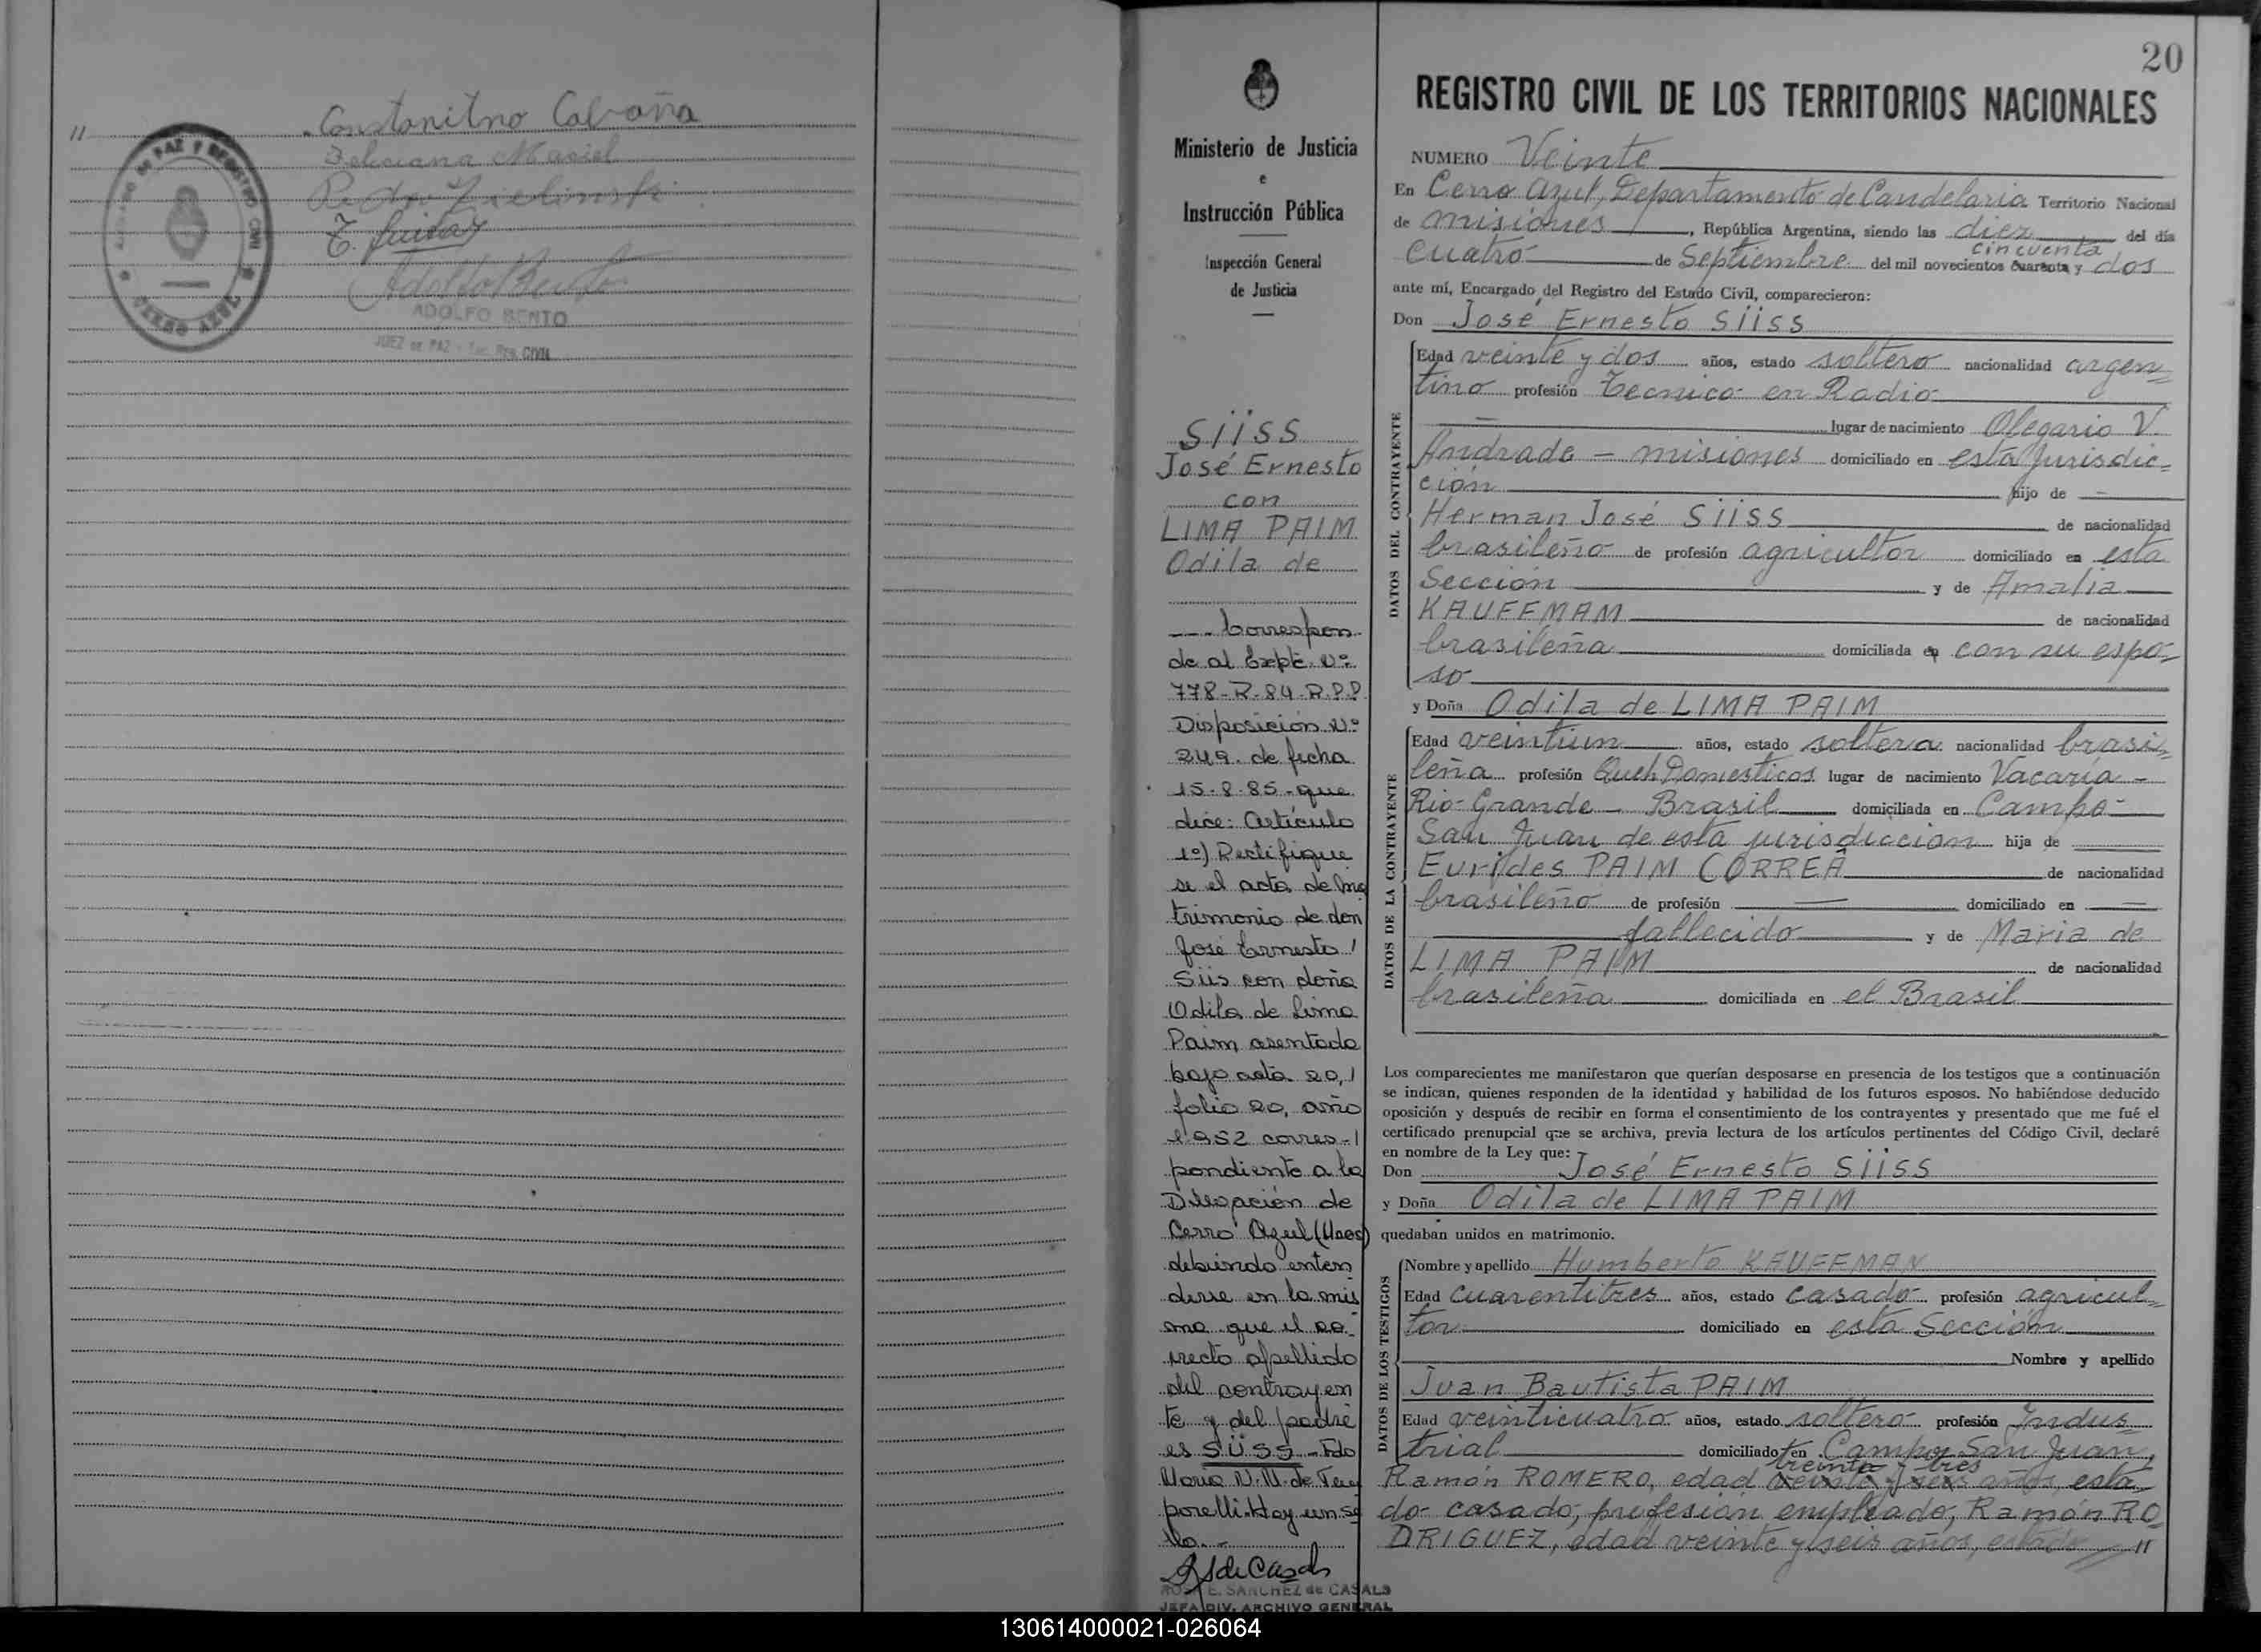 "
Constanitno Cabaña
Feliciana Maciel
Pedro Zielinski
ADOLFO BENTO
JUEZ DE PAZ CIVIL
JUZGADO DE PAZ Y REGISTRO CIVIL
CERRO AZUL
20
Ministerio de Justicia
e
Instrucción Pública
Inspección General
de Justicia
Siiss
José Ernesto
con
LIMA PAIM
Odila de
--- Correspon-
de al Expte. Nº
778-R-84-R.P.P.
Disposición Nº
249. de fecha
15-8-85.- que
dice: Artículo
1º) Rectifíque
se el acta de ma
trimonio de don
José Ernesto
Siis con doña
Odila de Lima
Paim asentada
bajo acta 20,
folio 20, año
1952 corres-
pondiente a la
Delegación de
Cerro Azul (Mnes)
debiendo enten
derse en la mis
ma que el co-
rrecto apellido
del contrayen
te y del padre
es SÜSS - Fdo
Maria N. M. de
porelli. Hay un se
llo.-
E. SANCHEZ de CASALS
JEFA DIV. ARCHIVO GENERAL
REGISTRO CIVIL DE LOS TERRITORIOS NACIONALES
NUMERO Veinte
En Cerro Azul, Departamento de Candelaria Territorio Nacional
de Misiones, República Argentina, siendo las diez del día
cuatro de Septiembre del mil novecientos cuarenta y cincuenta dos
ante mí, Encargado del Registro del Estado Civil, comparecieron:
Don José Ernesto Siiss
DATOS DEL CONTRAYENTE
Edad veinte y dos años, estado soltero nacionalidad argen=
tino profesión Tecnico en Radio
lugar de nacimiento Olegario V.
Andrade - misiones domiciliado en esta jurisdic=
ción hijo de -
Herman José Siiss de nacionalidad
brasileño de profesión agricultor domiciliado en esta
Sección y de Amalia
KAUFFMAM de nacionalidad
brasileña domiciliada en con su espo=
so
y Doña Odila de LIMA PAIM
DATOS DE LA CONTRAYENTE
Edad veintiun años, estado soltera nacionalidad brasi=
leña profesión Queh. Domesticos lugar de nacimiento Vacaria -
Rio-Grande - Brasil domiciliada en Campo
San Juan de esta jurisdiccion hija de
Eurides PAIM CORREA de nacionalidad
brasileño de profesión — domiciliado en —
fallecido y de Maria de
LIMA PAIM de nacionalidad
brasileña domiciliada en el Brasil
Los comparecientes me manifestaron que querían desposarse en presencia de los testigos que a continuación
se indican, quienes responden de la identidad y habilidad de los futuros esposos. No habiéndose deducido
oposición y después de recibir en forma el consentimiento de los contrayentes y presentado que me fué el
certificado prenupcial que se archiva, previa lectura de los artículos pertinentes del Código Civil, declaré
en nombre de la Ley que:
Don José Ernesto Siiss
y Doña Odila de LIMA PAIM
quedaban unidos en matrimonio.
DATOS DE LOS TESTIGOS
Nombre y apellido Humberto KAUFFMAN
Edad cuarentitres años, estado casado profesión agricul=
tor domiciliado en esta Sección
Nombre y apellido
Juan Bautista PAIM
Edad veinticuatro años, estado soltero profesión Indus=
trial domiciliado en Campo San Juan,
treinta y tres
Ramón ROMERO, edad veinte y seis años, esta
do casado, profesión empleado, Ramón RO
DRIGUEZ, edad veinte y seis años, estado "
130614000021-026064